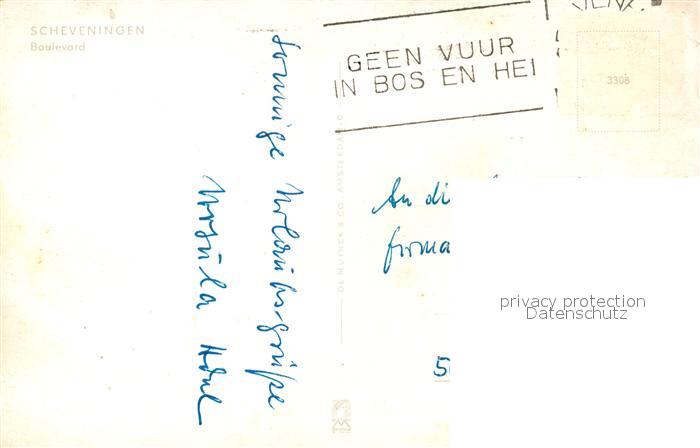 SCHEVENINGEN
Boulevard
GEEN VUUR
IN BOS EN HEI
3308
Sonnige Urlaubsgrüße
Ursula
DE MUINCK & CO. AMSTERDAM-C
An di
firma
5
privacy protection
Datenschutz